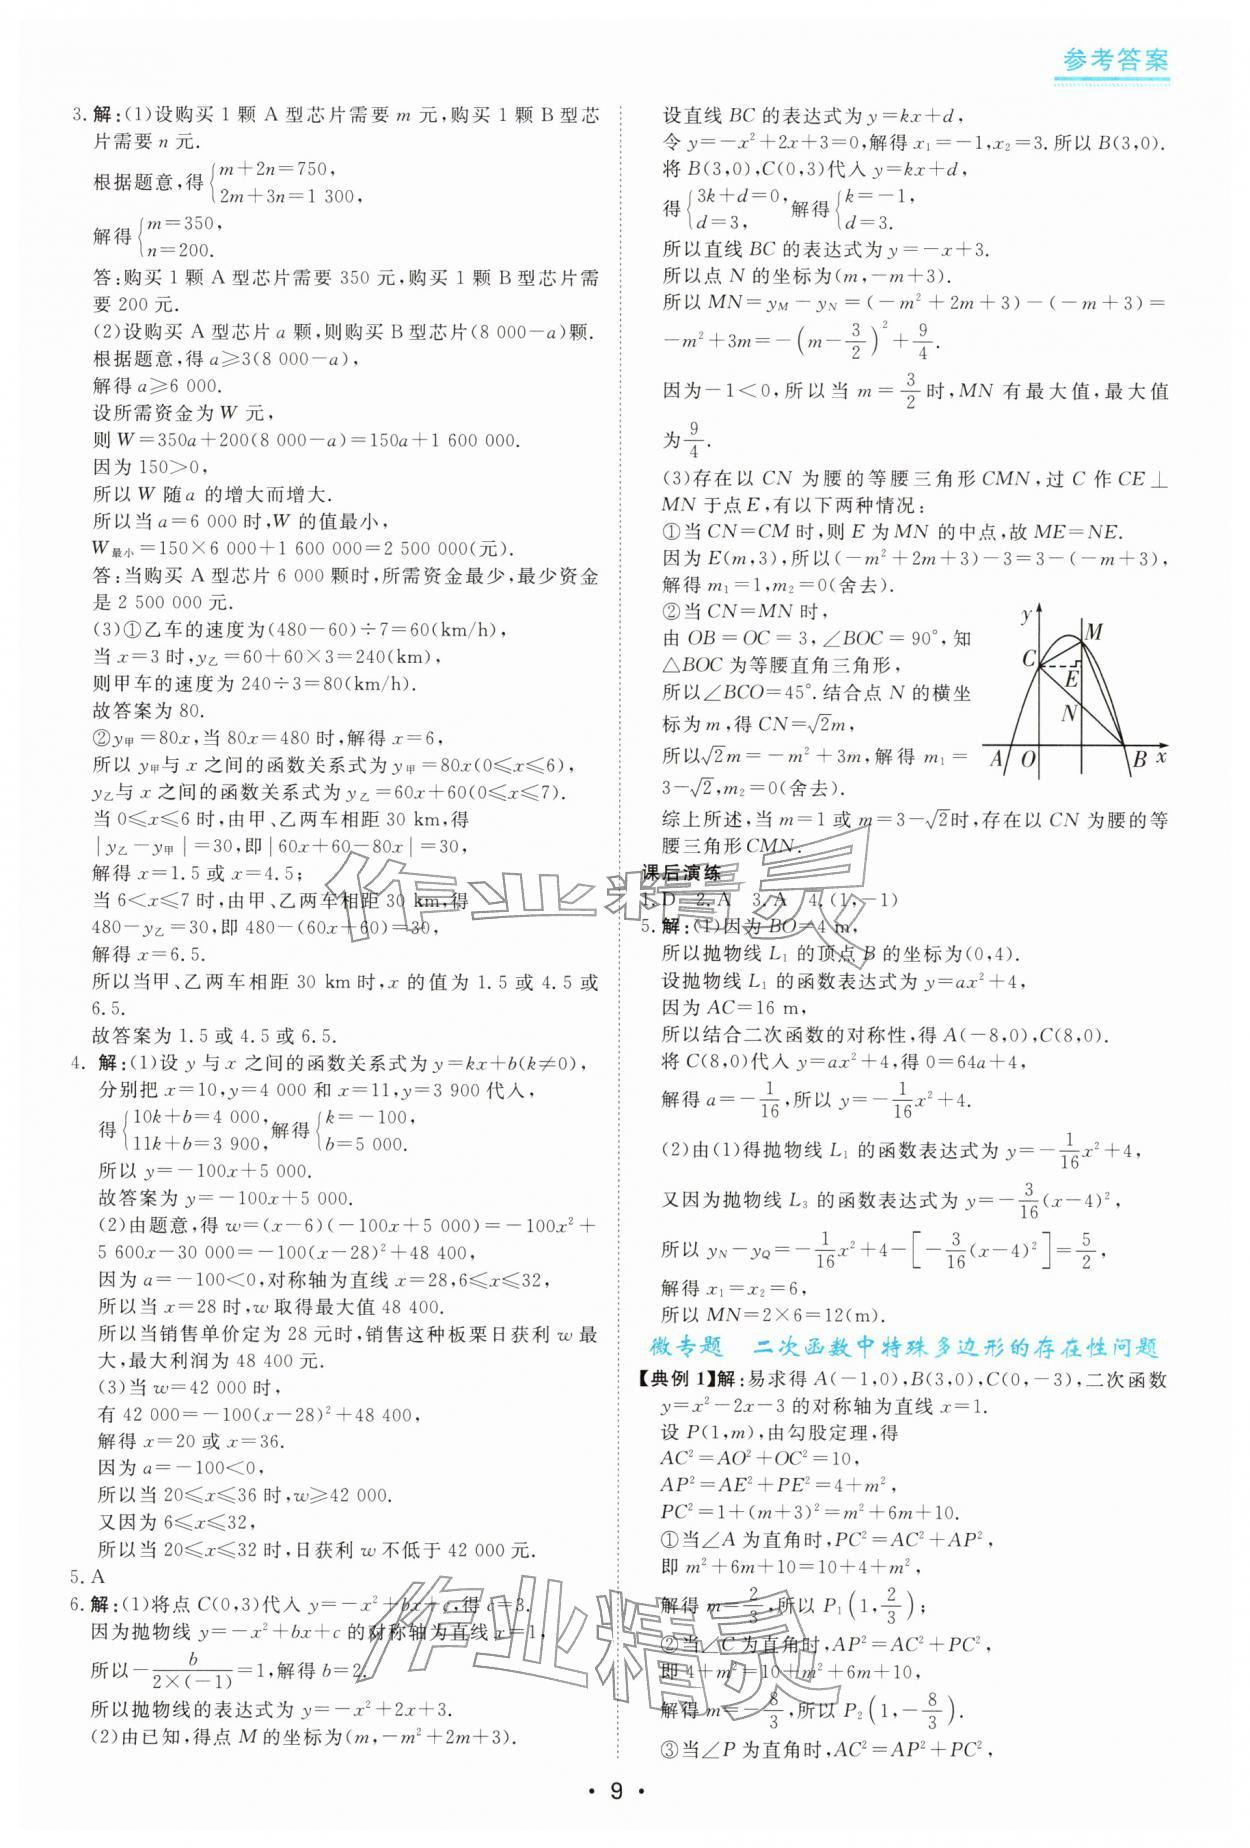 参考答案
3. 解:(1)设购买 1 颗 A 型芯片需要 m 元,购买 1 颗 B 型芯
片需要 n 元.
根据题意,得{m+2n=750,
2m+3n=1 300,
解得{m=350,
n=200.
答:购买 1 颗 A 型芯片需要 350 元,购买 1 颗 B 型芯片需
要 200 元.
(2)设购买 A 型芯片 a 颗,则购买 B 型芯片(8 000-a)颗.
根据题意,得 a≥3(8 000-a),
解得 a≥6 000.
设所需资金为 W 元,
则 W=350a+200(8 000-a)=150a+1 600 000.
因为 150>0,
所以 W 随 a 的增大而增大.
所以当 a=6 000 时,W 的值最小,
W最小=150×6 000+1 600 000=2 500 000(元).
答:当购买 A 型芯片 6 000 颗时,所需资金最少,最少资金
是 2 500 000 元.
(3)①乙车的速度为(480-60)÷7=60(km/h),
当 x=3 时,y乙=60+60×3=240(km),
则甲车的速度为 240÷3=80(km/h).
故答案为 80.
②y甲=80x,当 80x=480 时,解得 x=6,
所以 y甲与 x 之间的函数关系式为 y甲=80x(0≤x≤6),
y乙与 x 之间的函数关系式为 y乙=60x+60(0≤x≤7).
当 0≤x≤6 时,由甲、乙两车相距 30 km,得
|y乙-y甲|=30,即|60x+60-80x|=30,
解得 x=1.5 或 x=4.5;
当 6<x≤7 时,由甲、乙两车相距 30 km,得
480-y乙=30,即 480-(60x+60)=30,
解得 x=6.5.
所以当甲、乙两车相距 30 km 时,x 的值为 1.5 或 4.5 或
6.5.
故答案为 1.5 或 4.5 或 6.5.
4. 解:(1)设 y 与 x 之间的函数关系式为 y=kx+b(k≠0),
分别把 x=10,y=4 000 和 x=11,y=3 900 代入,
得{10k+b=4 000,
11k+b=3 900,
解得{k=-100,
b=5 000.
所以 y=-100x+5 000.
故答案为 y=-100x+5 000.
(2)由题意,得 w=(x-6)(-100x+5 000)=-100x²+
5 600x-30 000=-100(x-28)²+48 400,
因为 a=-100<0,对称轴为直线 x=28,6≤x≤32,
所以当 x=28 时,w 取得最大值 48 400.
所以当销售单价定为 28 元时,销售这种板栗日获利 w 最
大,最大利润为 48 400 元.
(3)当 w=42 000 时,
有 42 000=-100(x-28)²+48 400,
解得 x=20 或 x=36.
因为 a=-100<0,
所以当 20≤x≤36 时,w≥42 000.
又因为 6≤x≤32,
所以当 20≤x≤32 时,日获利 w 不低于 42 000 元.
5. A
6. 解:(1)将点 C(0,3)代入 y=-x²+bx+c,得 c=3.
因为抛物线 y=-x²+bx+c 的对称轴为直线 x=1,
所以-b/(2×(-1))=1,解得 b=2.
所以抛物线的表达式为 y=-x²+2x+3.
(2)由已知,得点 M 的坐标为(m,-m²+2m+3).
设直线 BC 的表达式为 y=kx+d,
令 y=-x²+2x+3=0,解得 x₁=-1,x₂=3.所以 B(3,0).
将 B(3,0),C(0,3)代入 y=kx+d,
得{3k+d=0,
d=3,
解得{k=-1,
d=3.
所以直线 BC 的表达式为 y=-x+3.
所以点 N 的坐标为(m,-m+3).
所以 MN=yM-yN=(-m²+2m+3)-(-m+3)=
-m²+3m=-(m-3/2)²+9/4.
因为-1<0,所以当 m=3/2时,MN 有最大值,最大值
为9/4.
(3)存在以 CN 为腰的等腰三角形 CMN,过 C 作 CE⊥
MN 于点 E,有以下两种情况:
①当 CN=CM 时,则 E 为 MN 的中点,故 ME=NE.
因为 E(m,3),所以(-m²+2m+3)-3=3-(-m+3),
解得 m₁=1,m₂=0(舍去).
②当 CN=MN 时,
由 OB=OC=3,∠BOC=90°,知
△BOC 为等腰直角三角形,
所以∠BCO=45°.结合点 N 的横坐
标为 m,得 CN=√2m,
所以√2m=-m²+3m,解得 m₁=
3-√2,m₂=0(舍去).
y
M
C
E
N
A O B x
综上所述,当 m=1 或 m=3-√2时,存在以 CN 为腰的等
腰三角形 CMN.
课后演练
1. D 2. A 3. A 4. (1,-1)
5. 解:(1)因为 BO=4 m,
所以抛物线 L₁ 的顶点 B 的坐标为(0,4).
设抛物线 L₁ 的函数表达式为 y=ax²+4,
因为 AC=16 m,
所以结合二次函数的对称性,得 A(-8,0),C(8,0).
将 C(8,0)代入 y=ax²+4,得 0=64a+4,
解得 a=-1/16,所以 y=-1/16x²+4.
(2)由(1)得抛物线 L₁ 的函数表达式为 y=-1/16x²+4,
又因为抛物线 L₃ 的函数表达式为 y=-3/16(x-4)²,
所以 yN-yQ=-1/16x²+4-[-3/16(x-4)²]=5/2,
解得 x₁=x₂=6,
所以 MN=2×6=12(m).
微专题 二次函数中特殊多边形的存在性问题
【典例 1】解:易求得 A(-1,0),B(3,0),C(0,-3),二次函数
y=x²-2x-3 的对称轴为直线 x=1.
设 P(1,m),由勾股定理,得
AC²=AO²+OC²=10,
AP²=AE²+PE²=4+m²,
PC²=1+(m+3)²=m²+6m+10.
①当∠A 为直角时,PC²=AC²+AP²,
即 m²+6m+10=10+4+m²,
解得 m=2/3,所以 P₁(1,2/3);
②当∠C 为直角时,AP²=AC²+PC²,
即 4+m²=10+m²+6m+10,
解得 m=-8/3,所以 P₂(1,-8/3).
③当∠P 为直角时,AC²=AP²+PC²,
作业精灵
作业精灵
• 9 •